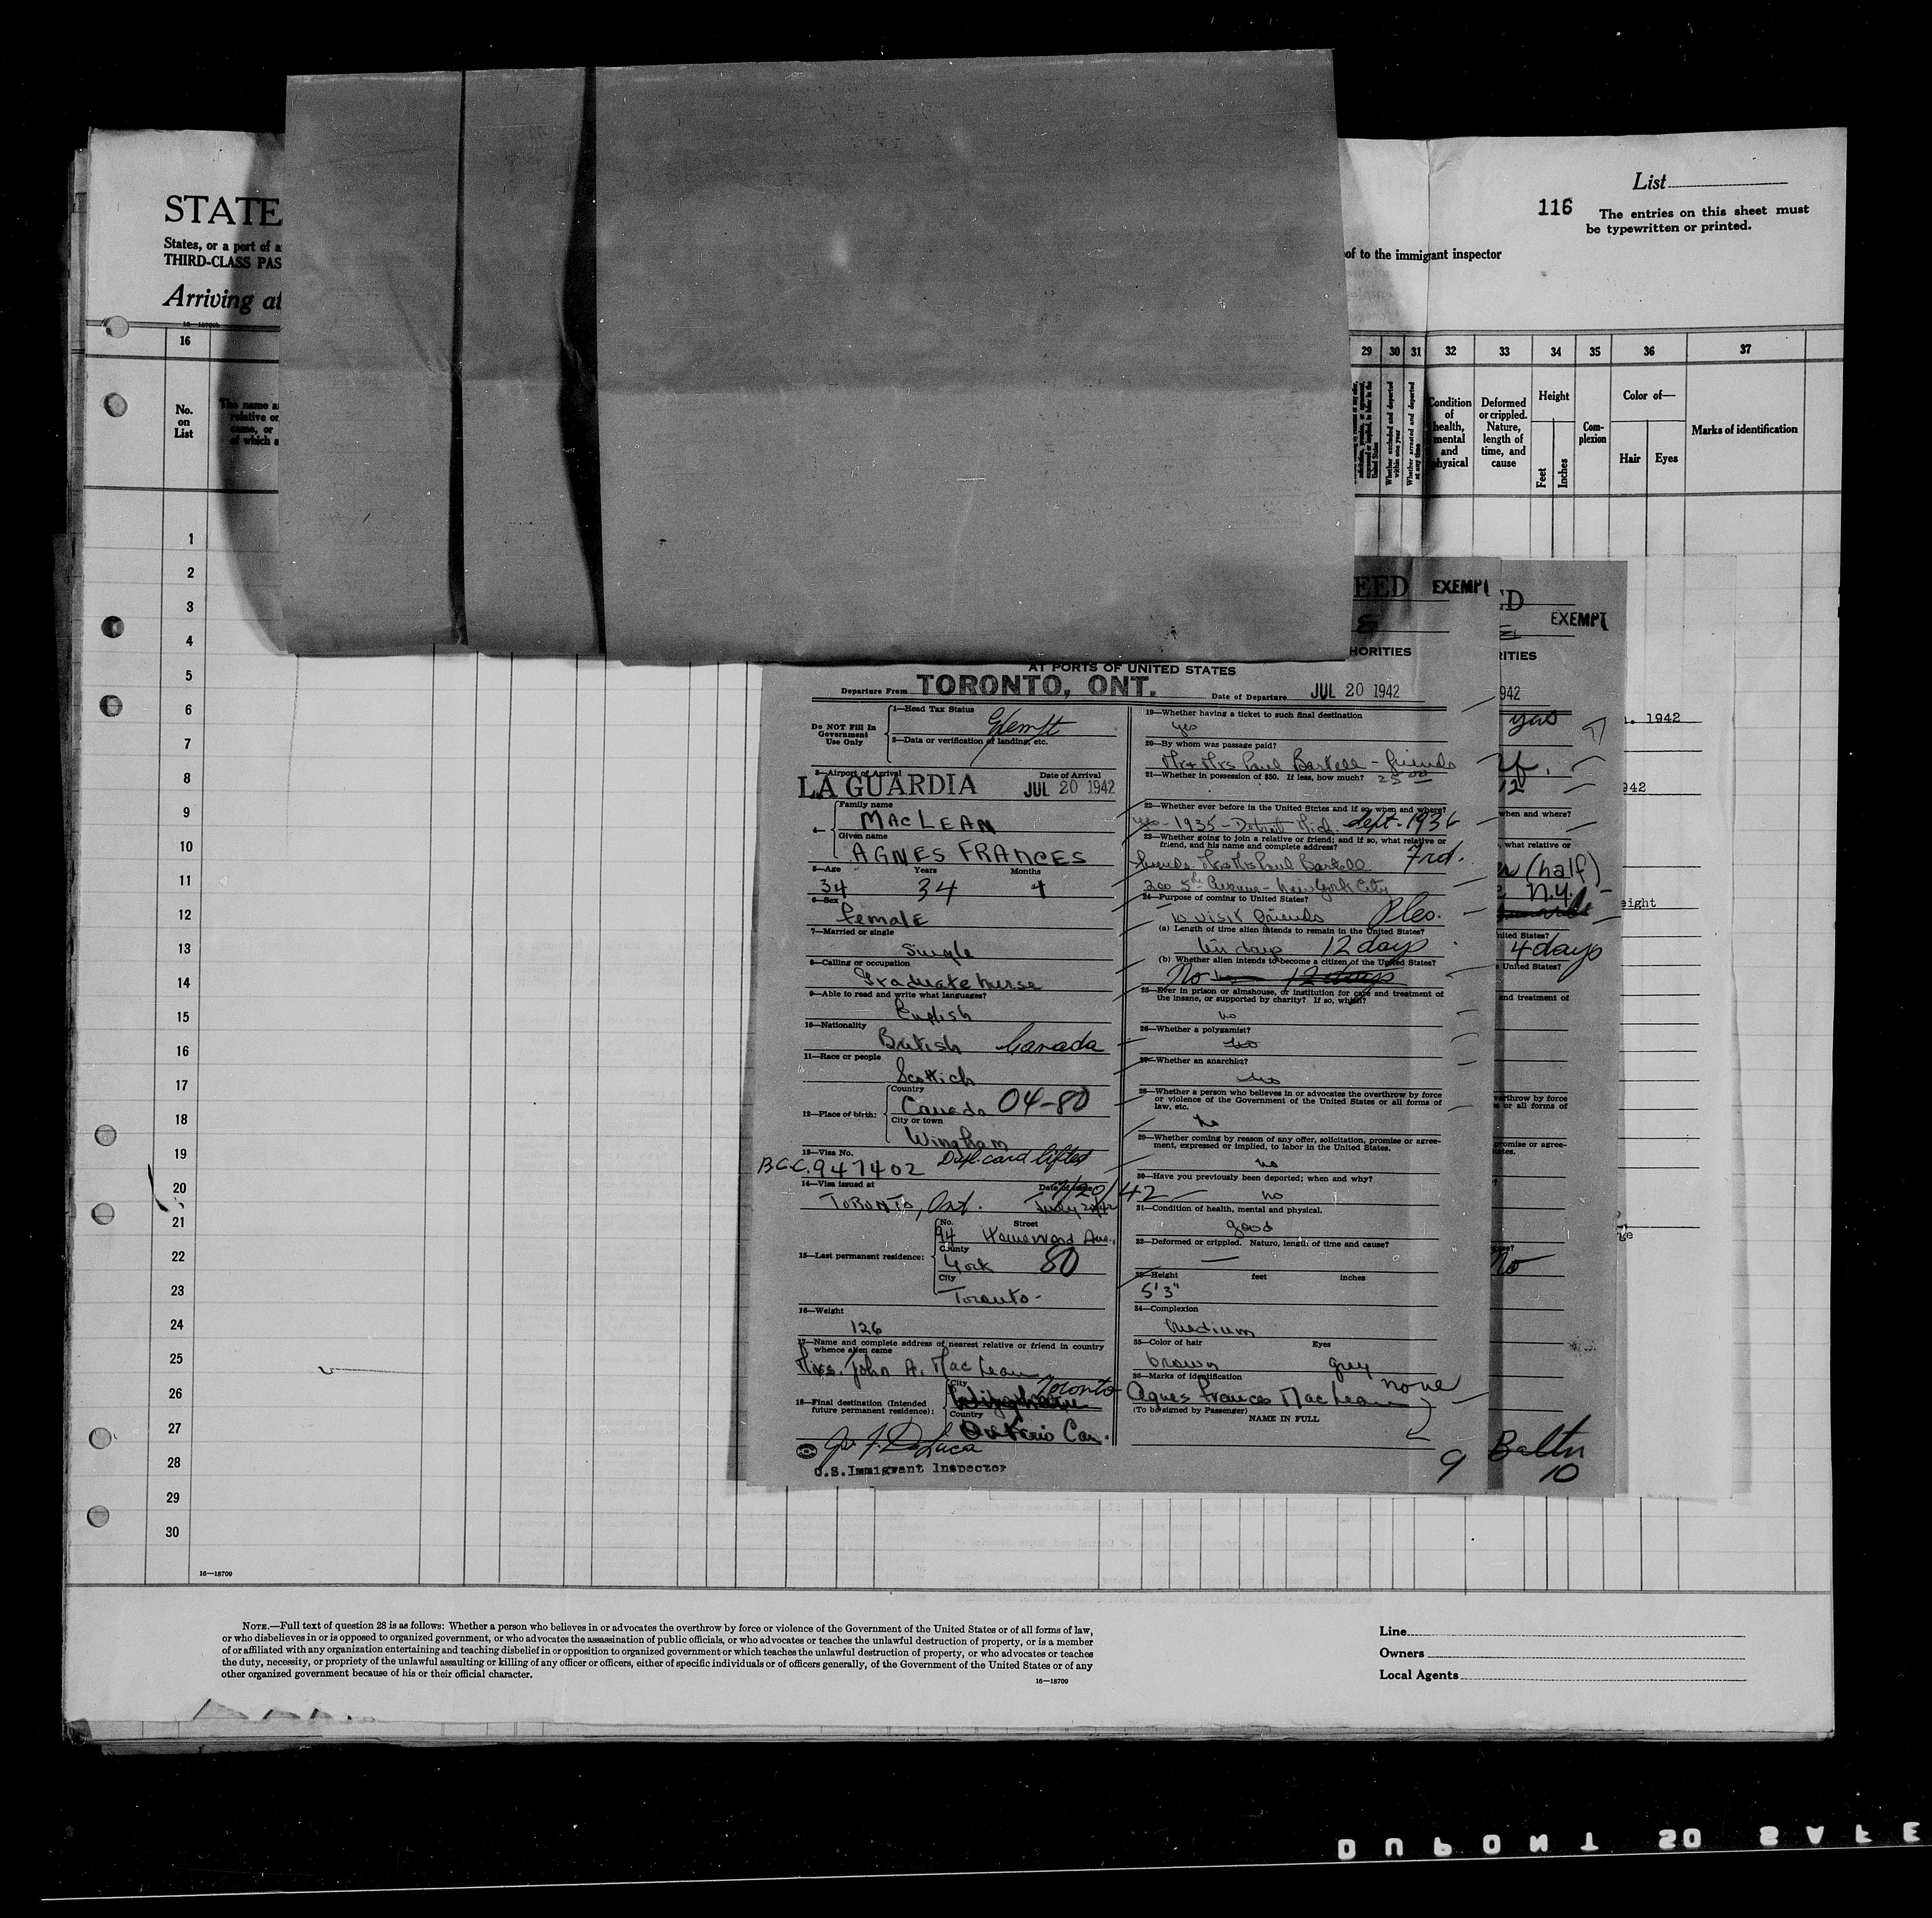 STATE
States, or a port of a
THIRD-CLASS PAS
Arriving at
16—18709b
List
116
The entries on this sheet must
be typewritten or printed.
of to the immigrant inspector
16
No.
on
List
The name a
relative or
came, or
of which a
29
30
31
32
33
34
35
36
37
Whether excluded and deported within one year
Whether arrested and deported at any time
Condition
of
health,
mental
and
physical
Deformed
or crippled.
Nature,
length of
time, and
cause
Height
Feet
Inches
Com-
plexion
Color of—
Hair
Eyes
Marks of identification
1
2
3
4
5
6
7
8
9
10
11
12
13
14
15
16
17
18
19
20
21
22
23
24
25
26
27
28
29
30
16—18709
EED EXEMPT
HORITIES
AT PORTS OF UNITED STATES
Departure From TORONTO, ONT. Date of Departure JUL 20 1942
Do NOT Fill In
Government
Use Only
1—Head Tax Status
Exempt
2—Data or verification of landing, etc.
3—Airport of Arrival Date of Arrival
LA GUARDIA JUL 20 1942
4—
Family name
MACLEAN
Given name
AGNES FRANCES
5—Age Years Months
34 34 4
6—Sex
female
7—Married or single
Single
8—Calling or occupation
Graduate nurse
9—Able to read and write what languages?
English
10—Nationality
British Canada
11—Race or people
Scottich
12—Place of birth:
Country
Canada 04-80
City or town
Wingham
13—Visa No.
B.C.C. 947402 Dupl. card lifted
14—Visa issued at Date of issue
TORONTO, Ont. 7/20/42
July 20/42
15—Last permanent residence:
No. Street
94 Homewood Ave.,
County
York 80
City
Toronto-
16—Weight
126
17—Name and complete address of nearest relative or friend in country
whence alien came
Mrs. John A. MacLean
18—Final destination (Intended
future permanent residence):
City
Toronto
Wingham
Country
Ontario Can.
Jos. F. DeLuca
U.S. Immigrant Inspector
19—Whether having a ticket to such final destination
yes
20—By whom was passage paid?
Mr & Mrs Paul Bartell - friends
21—Whether in possession of $50. If less, how much? 25.00
22—Whether ever before in the United States and if so, when and where?
yes - 1935 - Detroit Mich. Sept. 1936
23—Whether going to join a relative or friend; and if so, what relative or
friend, and his name and complete address?
Frd.
friends Mr & Mrs Paul Bartell
200 5th Avenue - New York City
24—Purpose of coming to United States?
to visit friends Ples.
(a) Length of time alien intends to remain in the United States?
ten days 12 days
(b) Whether alien intends to become a citizen of the United States?
No no 12 days
25—Ever in prison or almshouse, or institution for care and treatment of
the insane, or supported by charity? If so, which?
no
26—Whether a polygamist?
no
27—Whether an anarchist?
no
28—Whether a person who believes in or advocates the overthrow by force
or violence of the Government of the United States or all forms of
law, etc.
no
29—Whether coming by reason of any offer, solicitation, promise or agree-
ment, expressed or implied, to labor in the United States.
no
30—Have you previously been deported; when and why?
no
31—Condition of health, mental and physical.
good
32—Deformed or crippled. Nature, length of time and cause?
—
33—Height feet inches
5'3"
34—Complexion
medium
35—Color of hair Eyes
brown grey
36—Marks of identification none
Agnes Frances MacLean
(To be signed by Passenger)
NAME IN FULL
9
ED
EXEMPT
RITIES
942
yes
12
when and where?
, what relative or
(half)
N.Y.
nited States?
4 days
e United States?
and treatment of
erthrow by force
s or all forms of
promise or agree-
ates.
use?
No
Baltn
10
. 1942
942
eight
ge
NOTE.—Full text of question 28 is as follows: Whether a person who believes in or advocates the overthrow by force or violence of the Government of the United States or of all forms of law,
or who disbelieves in or is opposed to organized government, or who advocates the assassination of public officials, or who advocates or teaches the unlawful destruction of property, or is a member
of or affiliated with any organization entertaining and teaching disbelief in or opposition to organized government or which teaches the unlawful destruction of property, or who advocates or teaches
the duty, necessity, or propriety of the unlawful assaulting or killing of any officer or officers, either of specific individuals or of officers generally, of the Government of the United States or of any
other organized government because of his or their official character.
16—18709
Line
Owners
Local Agents
DUPONT SO SAFE